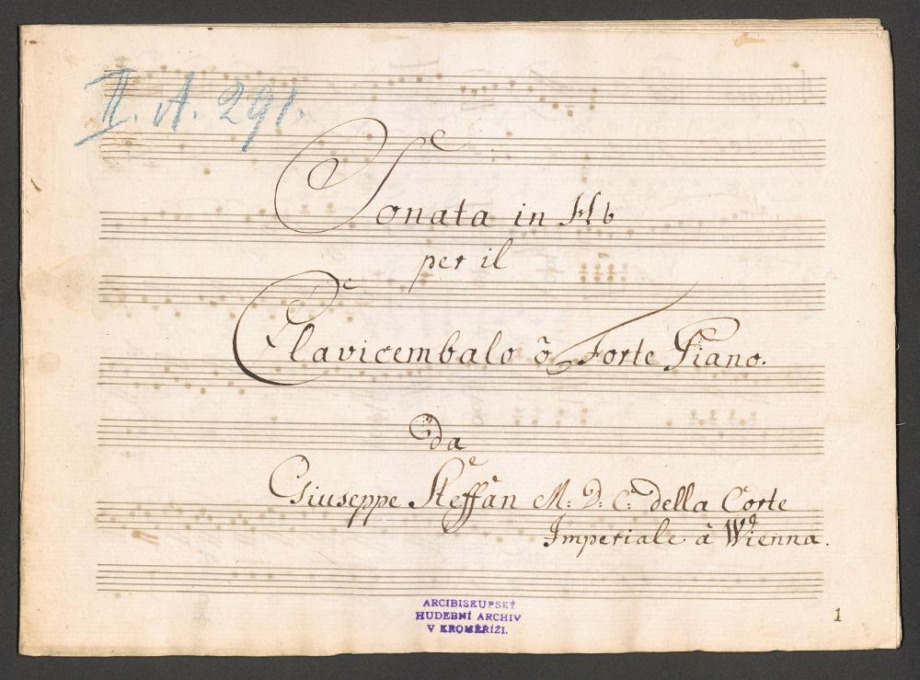 II. A. 291.
Sonata in H b
per il
Clavicembalo ô Forte Piano.
da
Giuseppe Steffan M: D: C: della Corte
Imperiale à Wienna.
ARCIBISKUPSKÝ
HUDEBNÍ ARCHIV
V KROMĚŘÍŽI.
1